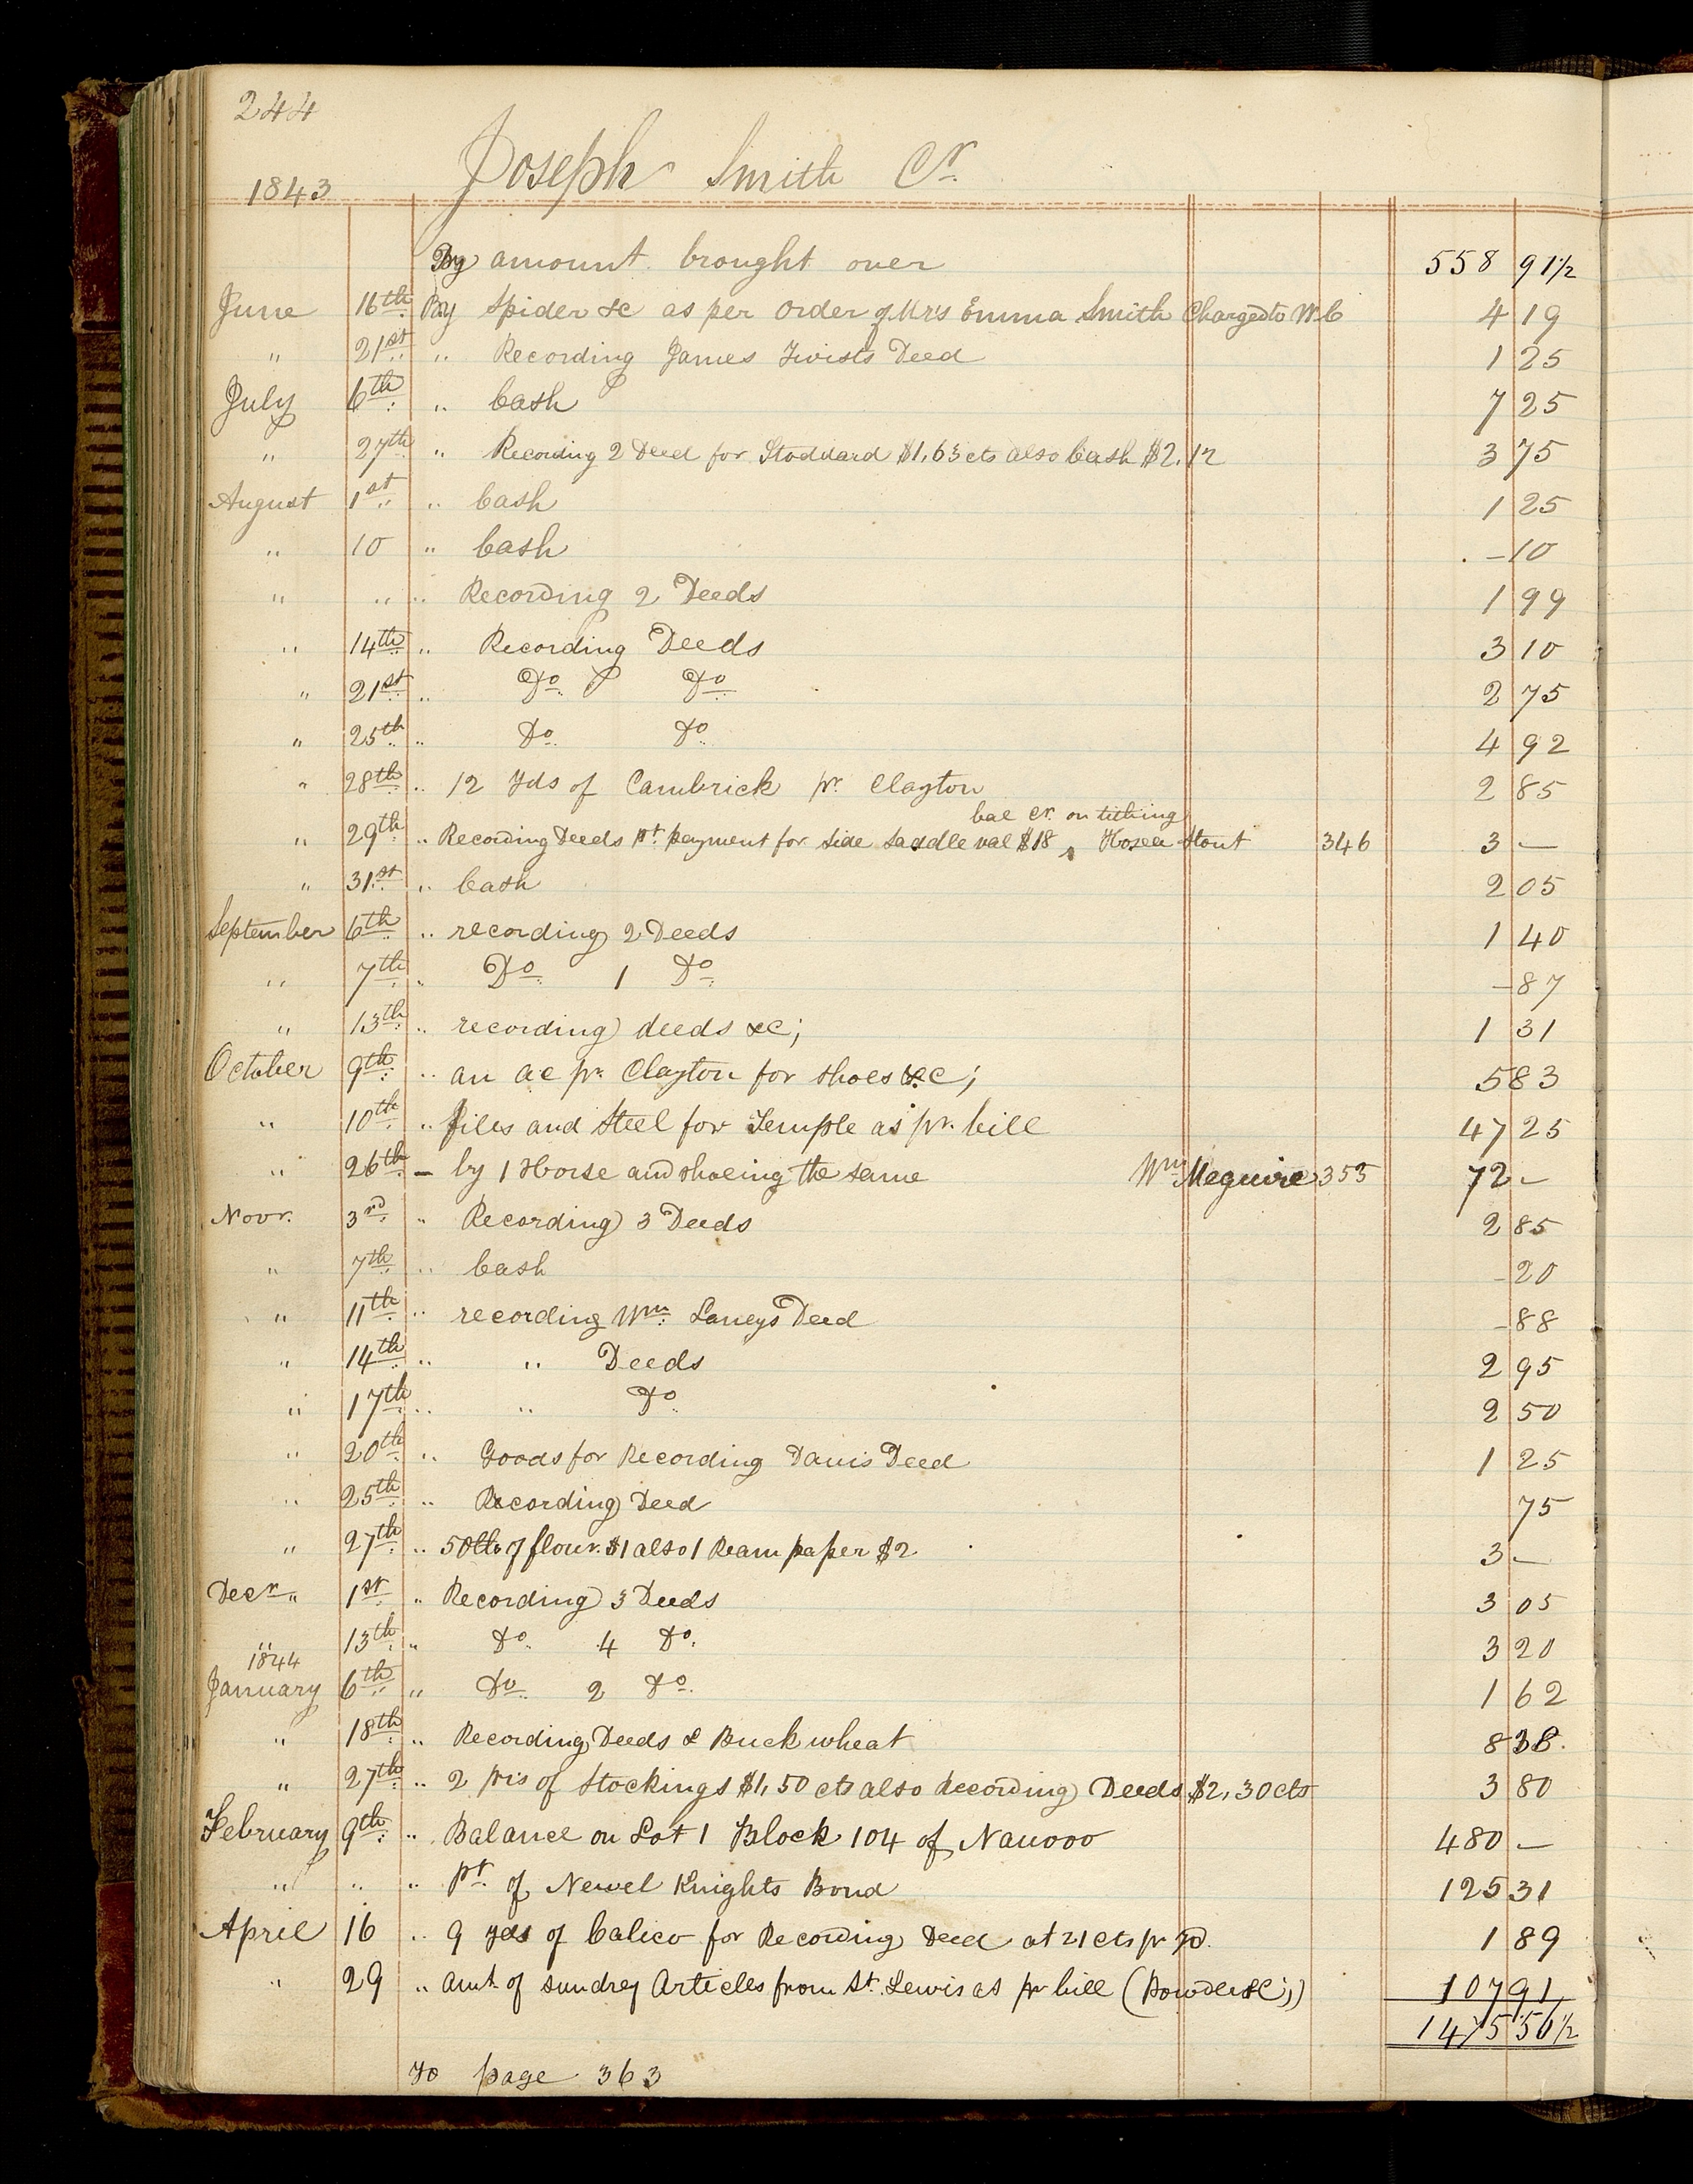 244
Joseph Smith Cr.
1843
By amount brought over 558 91½
June 16th By Spider &c as per order of Mrs Emma Smith Charged to W. C 4 19
" 21st " Recording James Twists Deed 1 25
July 6th " Cash 7 25
" 27th " Recording 2 Deed for Stoddard $1,63 cts also Cash $2.12 3 75
August 1st " Cash 1 25
" 10 " Cash - 10
" " " Recording 2 Deeds 1 99
" 14th " Recording Deeds 3 10
" 21st " Do Do 2 75
" 25th " Do Do 4 92
" 28th " 12 Yds of Cambrick pr Clayton 2 85
bal Cr. on tithing
" 29th " Recording Deeds pt. payment for side saddle val $18 ‸ Hosea Stout 346 3 —
" 31st " Cash 2 05
September 6th " recording 2 Deeds 1 40
" 7th " Do 1 Do - 87
" 13th " recording deeds &c; 1 31
October 9th " an ac pr. Clayton for shoes &c; 5 83
" 10th " files and Steel for Temple as pr. bill 47 25
" 26th — by 1 Horse and shoeing the same Wm Meguire 353 72 -
Novr. 3rd " Recording 3 Deeds 2 85
" 7th " Cash - 20
" 11th " recording Wm Laneys Deed - 88
" 14th " " Deeds 2 95
" 17th " " Do 2 50
" 20th " Goods for Recording Davis Deed 1 25
" 25th " Recording Deed 75
" 27th " 50lb of flour. $1 also 1 Ream paper $2 3 —
Decr " 1st " Recording 3 Deeds 3 05
" 13th " Do 4 Do 3 20
1844
January 6th " Do 2 Do 1 62
" 18th " Recording Deeds & Buckwheat 8 38
" 27th " 2 prs of Stockings $1,50 cts also Recording Deeds $2,30 cts 3 80
February 9th " Balance on Lot 1 Block 104 of Nauvoo 480 —
" " " pt. of Newel Knights Bond 125 31
April 16 " 9 yds of Calico for Recording Deed at 21 cts pr yd. 1 89
" 29 " Amt. of sundrey Articles from St. Lewis as pr bill (Powder &c;) 107 91
1475 50½
To page 363